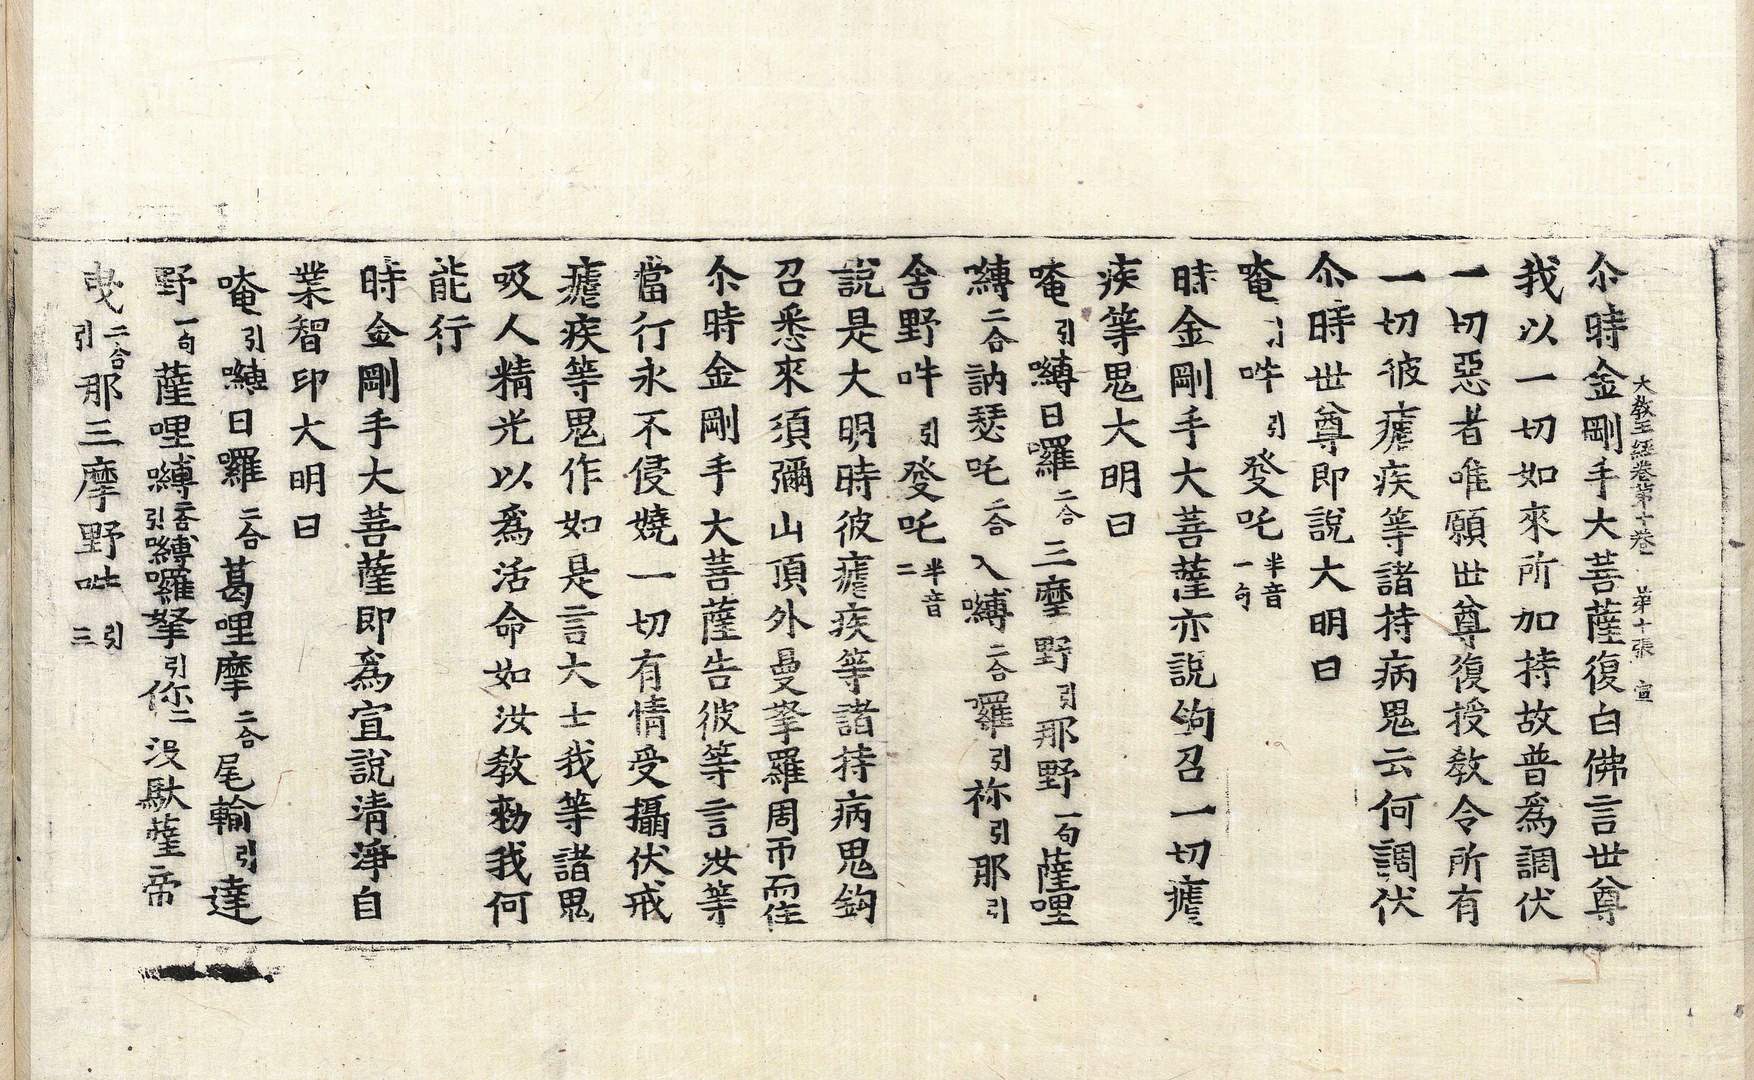 大教王經卷第十卷 第十張 宣
尒時金剛手大菩薩復白佛言世尊
我以一切如來所加持故普爲調伏
一切惡者唯願世尊復授敎令所有
一切彼瘧疾等諸持病鬼云何調伏
尒時世尊即說大明曰
唵引吽引發吒半音一句
時金剛手大菩薩亦說鉤召一切瘧
疾等鬼大明曰
唵引嚩日囉二合三摩野引那野一句薩哩
嚩二合訥瑟吒二合入嚩二合囉引祢引那引
舍野吽引發吒半音二
說是大明時彼瘧疾等諸持病鬼鈎
召悉來須彌山頂外曼拏羅周帀而住
尒時金剛手大菩薩告彼等言汝等
當行永不侵嬈一切有情受攝伏戒
瘧疾等鬼作如是言大士我等諸鬼
吸人精光以爲活命如汝敎勑我何
能行
時金剛手大菩薩即爲宣說清淨自
業智印大明曰
唵引嚩日囉二合葛哩摩二合尾輸引達
野一句薩哩嚩二合嚩囉拏引你二沒馱薩帝
曳二合引那三摩野吽引三